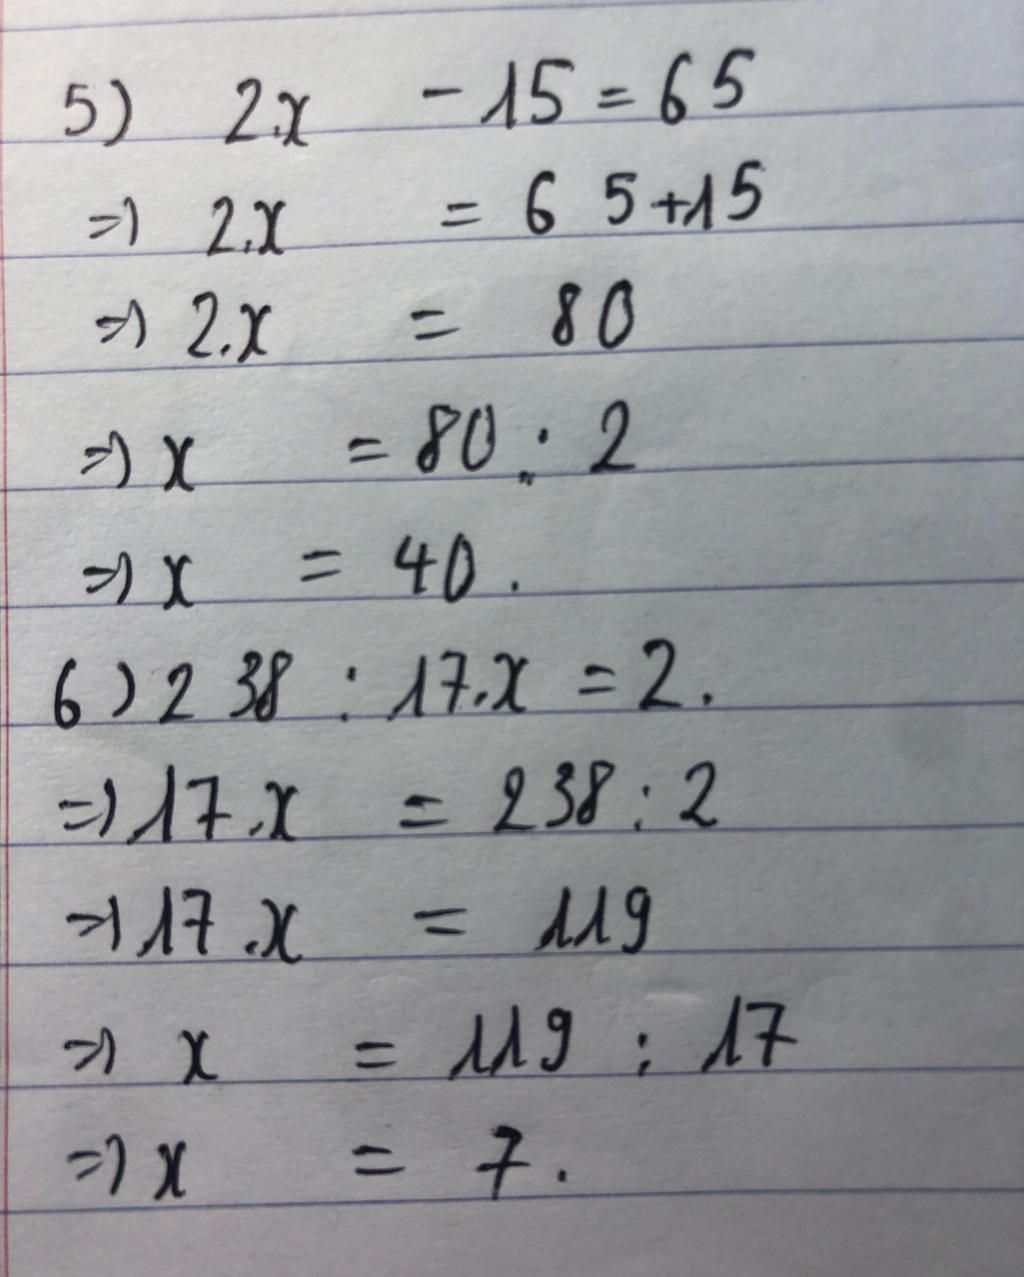 5) 2.x - 15 = 65
=> 2.x = 65+15
=> 2.x = 80
=> x = 80 : 2
=> x = 40.
6) 238 : 17.x = 2.
=> 17.x = 238 : 2
=> 17.x = 119
=> x = 119 : 17
=> x = 7.